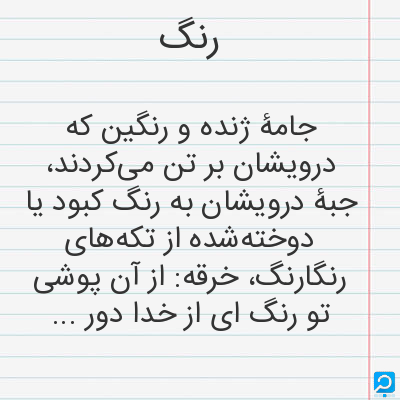 رنگ
جامهٔ ژنده و رنگین که
درویشان بر تن می‌کردند،
جبهٔ درویشان به رنگ کبود یا
دوخته‌شده از تکه‌های
رنگارنگ، خرقه: از آن پوشی
تو رنگ ای از خدا دور ...